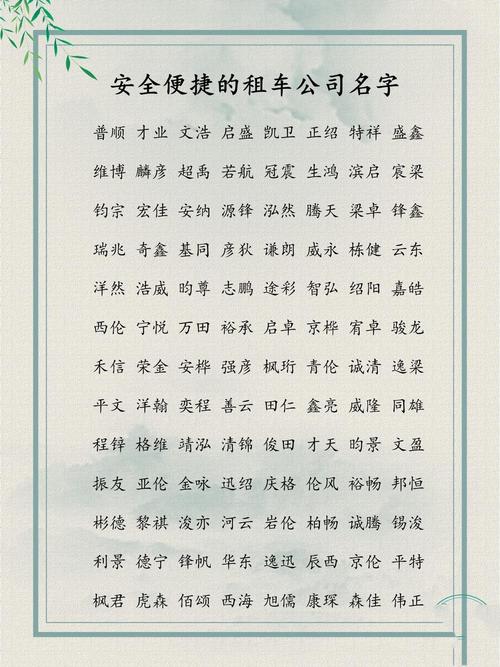 安全便捷的租车公司名字
普顺 才业 文浩 启盛 凯卫 正绍 特祥 盛鑫
维博 麟彦 超禹 若航 冠震 生鸿 滨启 宸梁
钧宗 宏佳 安纳 源锋 泓然 腾天 梁卓 锋鑫
瑞兆 奇鑫 基同 彦狄 谦朗 威永 栋健 云东
洋然 浩威 昀尊 志鹏 途彩 智弘 绍阳 嘉皓
西伦 宁悦 万田 裕承 启卓 京桦 宥卓 骏龙
禾信 荣金 安桦 强彦 枫珩 青伦 诚清 逸梁
平文 洋翰 奕程 善云 田仁 鑫亮 威隆 同雄
程锌 格维 靖泓 清锦 俊田 才天 昀景 文盈
振友 亚伦 金咏 迅绍 庆格 伦风 裕畅 邦恒
彬德 黎祺 浚亦 河云 岩伦 柏畅 诚腾 锡浚
利景 德宁 锋帆 华东 逸迅 辰西 京伦 平特
枫君 虎森 佰颂 西海 旭儒 康琛 森佳 伟正